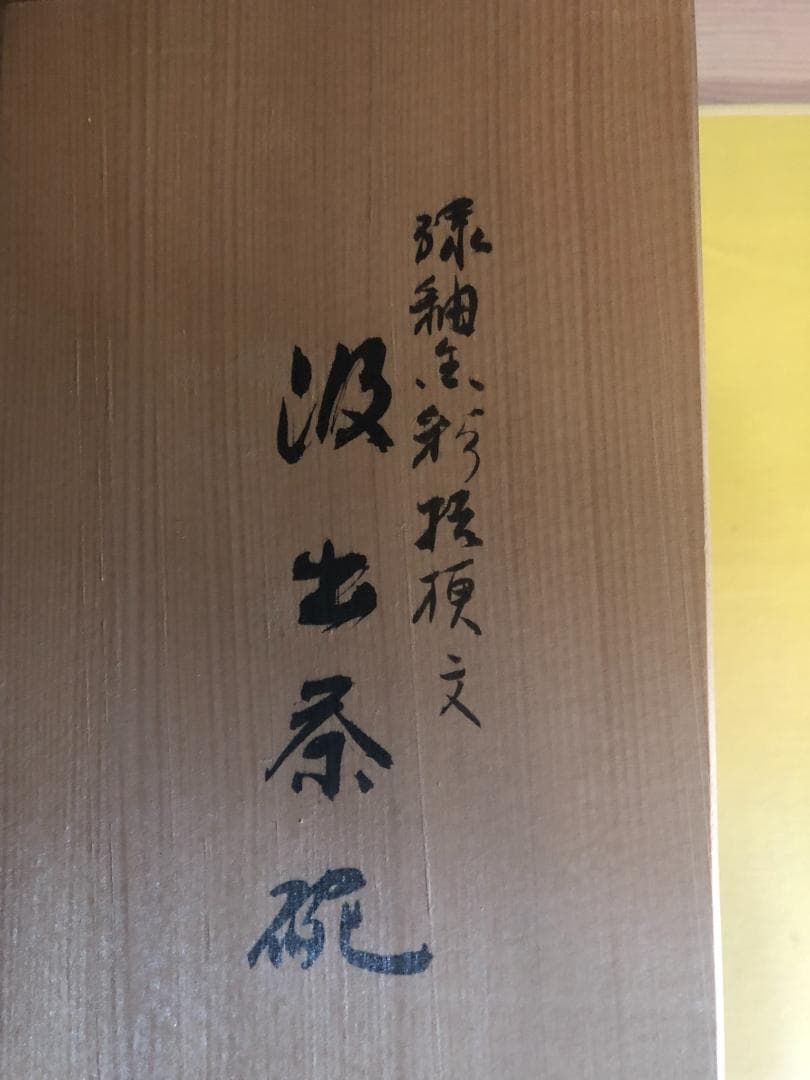 緑釉金彩桔梗文
汲出茶碗